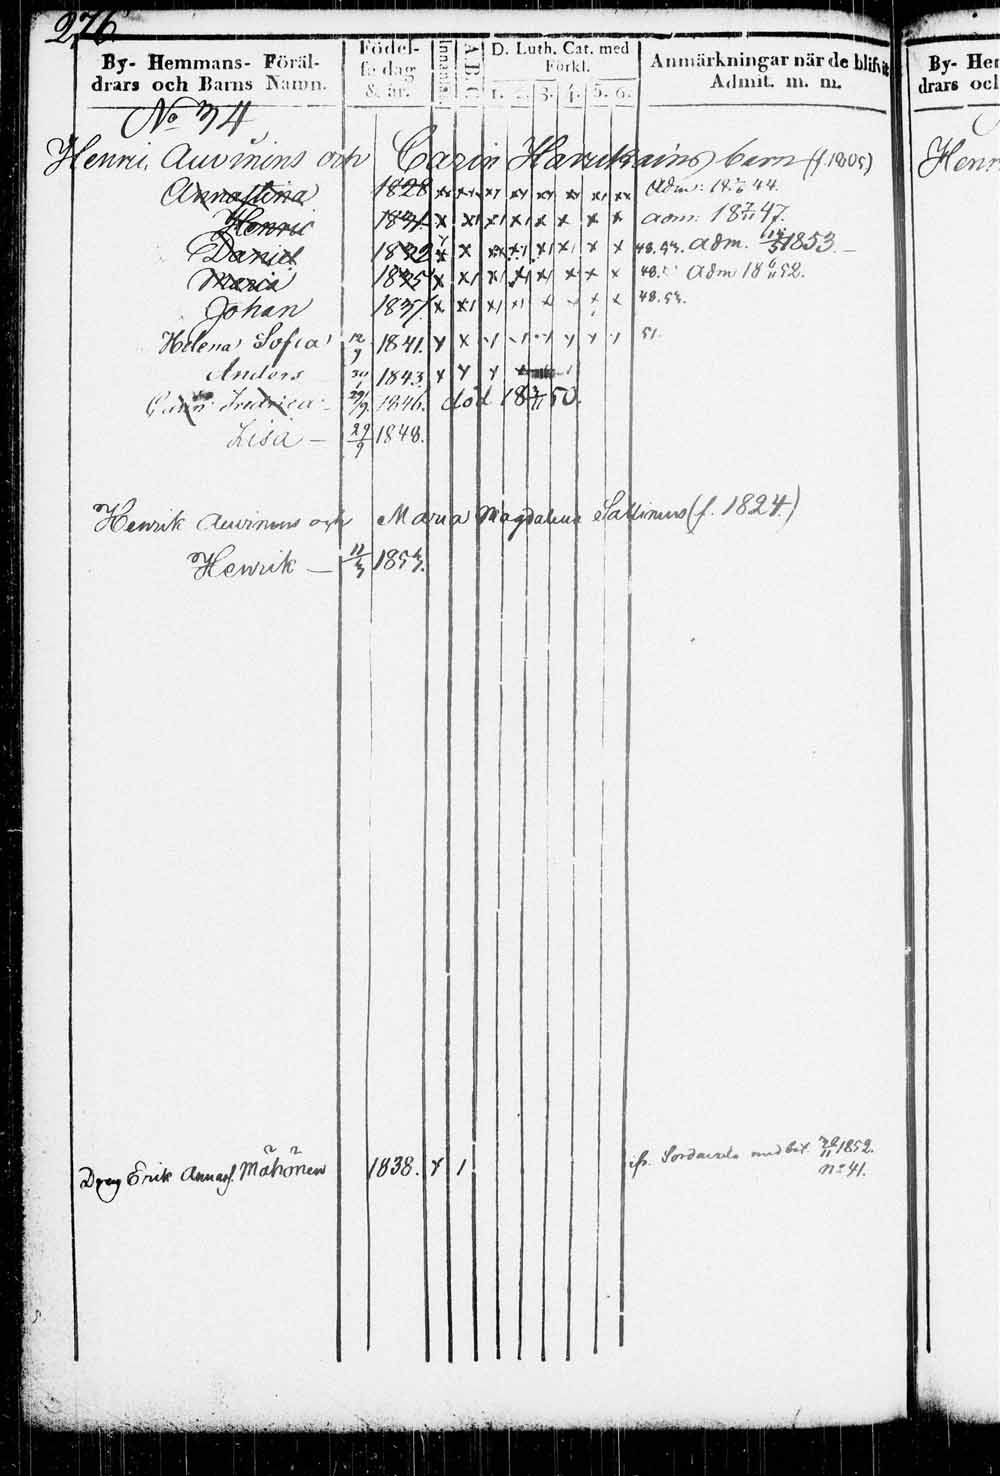 276
By- Hemmans- Föräl-
drars och Barns Namn.
Födel-
se dag
& år.
Innanläs.
A B C
D. Luth. Cat. med
Förkl.
1. 2. 3. 4. 5. 6.
Anmärkningar när de blifvit
Admit. m. m.
No 34
Henric Auvinens och Carin Harrikains barn (f. 1805)
Anna Stina 1828 x x x x x x x x adm: 18 44.
Henric 1831 x x x x x x x x adm: 18 7/11 47.
Daniel 1833 x x x x x x x x 48.53. adm. 1853.
Maria 1835 x x x x x x x x 48. adm 18 52.
Johan 1837. x x x x x x x 48.53.
Helena Sofia 12/9 1841. x x 51.
Anders 1843 x x x
Carin Fredrica 29/9 1846. död 18 3/11 50.
Lisa — 29/9 1848.
Henrik Auvinens och Maria Magdalena (f. 1824.)
Henrik — 11/3 1853.
Dreng Erik 1838. x 1 Sordavala med bet. 1852.
No 41.
By- Hem
drars och
Henr